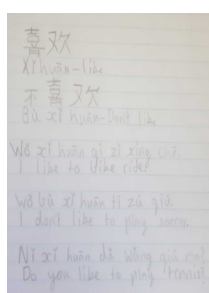 喜欢
Xǐ huān-like
不喜欢
Bù xǐ huān-Dont like
Wǒ xǐ huān qí zì xíng chē.
I like to bike ride.
Wǒ bù xǐ huān tī zú qiú.
I dont like to play soccer.
Nǐ xǐ huān dǎ wǎng qiú ma?
Do you like to play tennis?